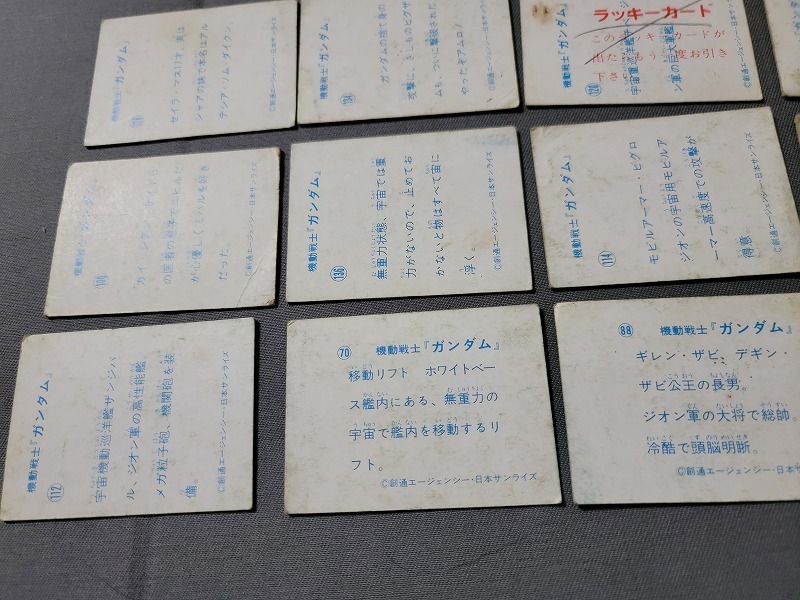 機動戦士『ガンダム』
セイラ・マス(17才)実は
シャアの妹で本名はアル
テシア・ソム・ダイクン。
©創通エージェンシー・日本サンライズ
機動戦士『ガンダム』
134
ガンダムの捨て身の
攻撃に、さしものビグザ
ムも、ついに撃破された。
やったぞアムロ♪
©創通エージェンシー・日本サンライズ
ラッキーカード
このラッキーカードが
出たらもう一度お引き
下さい
機動戦士『ガンダム』
120
ン軍の巨大軍艦
©創通エージェンシー・日本サンライズ
機動戦士『ガンダム』
の医者の息子でニヒルだ
が心優しくミハルを好き
だった。
©創通エージェンシー・日本サンライズ
機動戦士『ガンダム』
136
無重力状態、宇宙では重
力がないので、止めてお
かないと物はすべて宙に
浮く。
©創通エージェンシー・日本サンライズ
機動戦士『ガンダム』
114
モビルアーマー・ビグロ
ジオンの宇宙用モビルア
ーマー高速度での攻撃が
得意。
©創通エージェンシー・日本サンライズ
機動戦士『ガンダム』
112
宇宙機動巡洋艦ザンジバ
ル、ジオン軍の高性能艦
メガ粒子砲、機関砲を装
備。
©創通エージェンシー・日本サンライズ
70 機動戦士『ガンダム』
移動リフト ホワイトベー
ス艦内にある、無重力の
宇宙で艦内を移動するリ
フト。
©創通エージェンシー・日本サンライズ
88 機動戦士『ガンダム』
ギレン・ザビ、デギン・
ザビ公王の長男。
ジオン軍の大将で総帥。
冷酷で頭脳明晰。
©創通エージェンシー・日本サンライズ